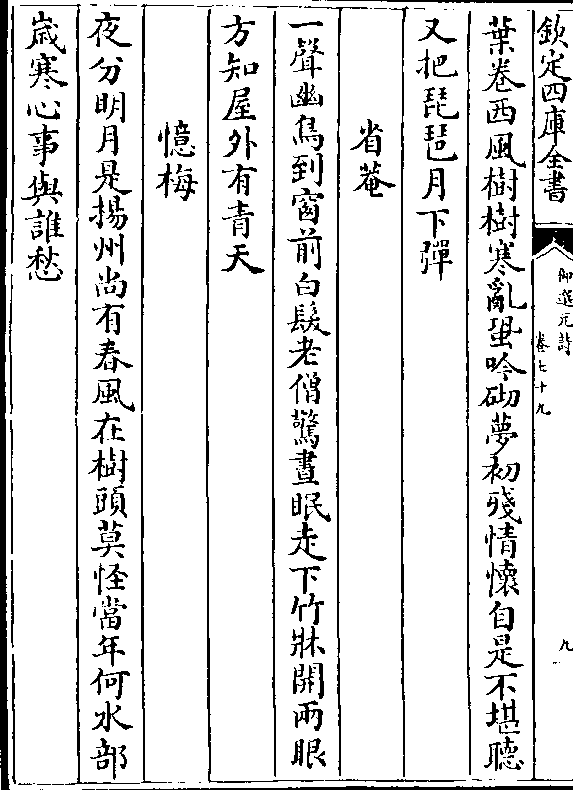 欽定四庫全書
御選元詩
卷七十九
九
葉卷西風樹樹寒亂蛩吟砌夢初殘情懷自是不堪聽
又把琵琶月下彈
省菴
一聲幽鳥到窗前白髮老僧驚晝眠走下竹牀開兩眼
方知屋外有青天
憶梅
夜分明月是揚州尚有春風在樹頭莫怪當年何水部
歲寒心事與誰愁